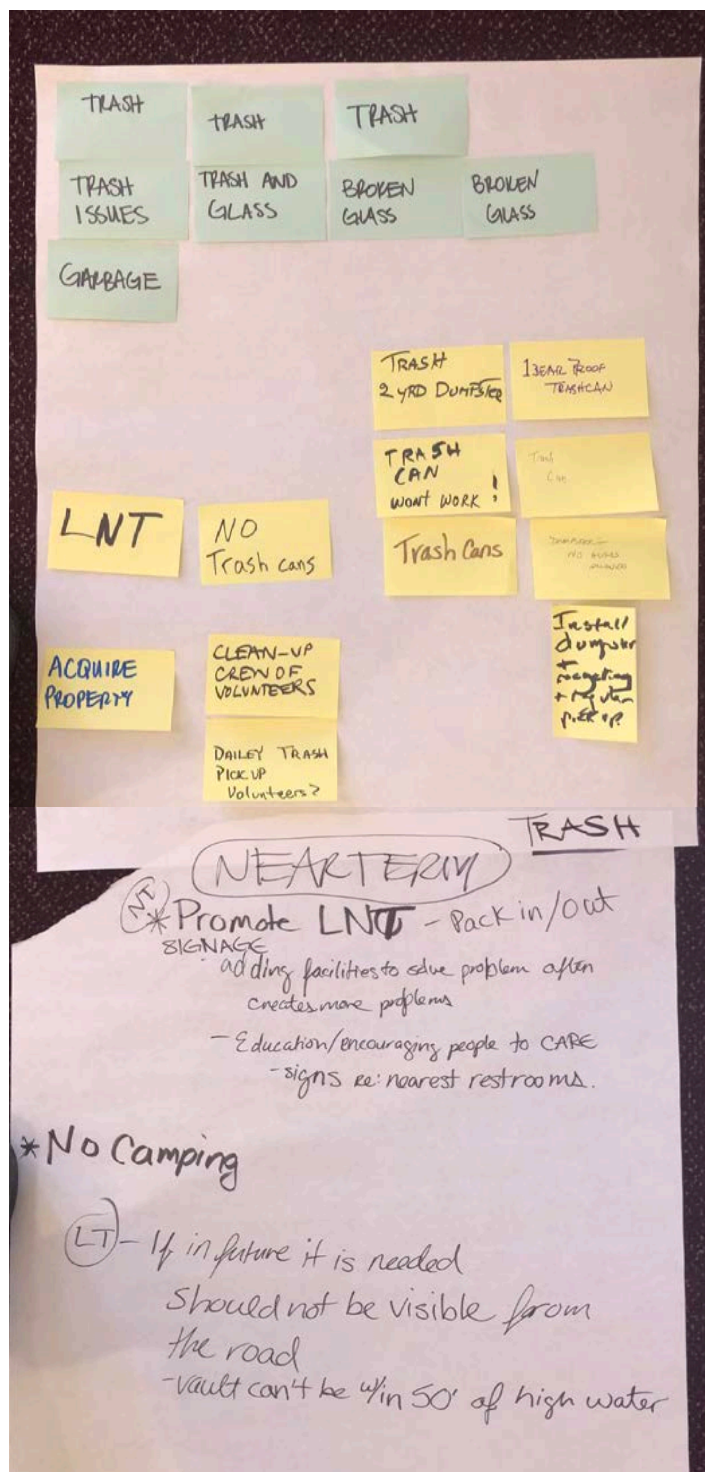 TRASH
TRASH
TRASH
TRASH
ISSUES
TRASH AND
GLASS
BROKEN
GLASS
BROKEN
GLASS
GARBAGE
TRASH
2 YRD DUMPSTER
BEAR PROOF
TRASHCAN
TRASH
CAN
WONT WORK !
Trash
Can
LNT
NO
Trash cans
Trash Cans
DUMPSTER -
NO
ALLOWED
ACQUIRE
PROPERTY
CLEAN-UP
CREW OF
VOLUNTEERS
Install
dumpster
+
recycling
+ regular
pick up
DAILEY TRASH
PICK UP
Volunteers?
TRASH
NEARTERM
NT
* Promote LNT - Pack in/out
SIGNAGE
adding facilities to solve problem often
creates more problems
- Education/encouraging people to CARE
- signs re: nearest restrooms.
* No Camping
LT - If in future it is needed
should not be visible from
the road
- vault can't be w/in 50' of high water